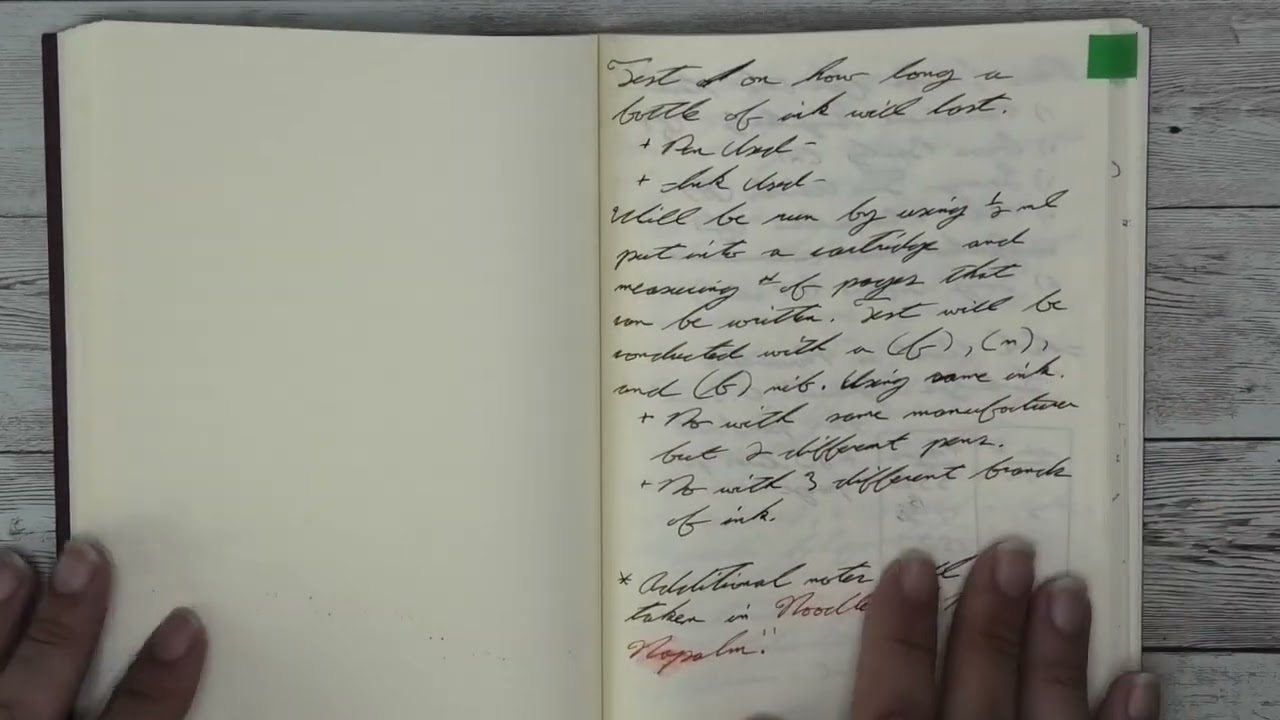 Test on how long a
bottle of ink will last.
+ Pen Used -
+ Ink Used -
Will be run by using ½ ml
put into a cartridge and
measuring # of pages that
can be written. Test will be
conducted with a (f), (m),
and (b) nib. Using same ink.
+ Do with same manufacturer
but 2 different pens.
+ Do with 3 different brands
of ink.
* Additional notes
taken in Noodle
Napalm".